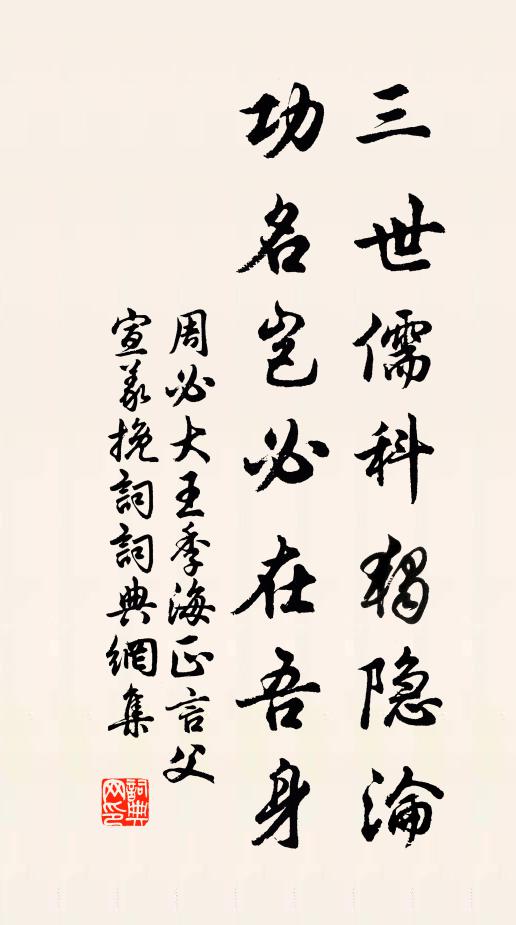 三世儒科独隐淪
功名岂必在吾身
周必大王季海正言父
宣义挽詞詞典網集
詞典网印